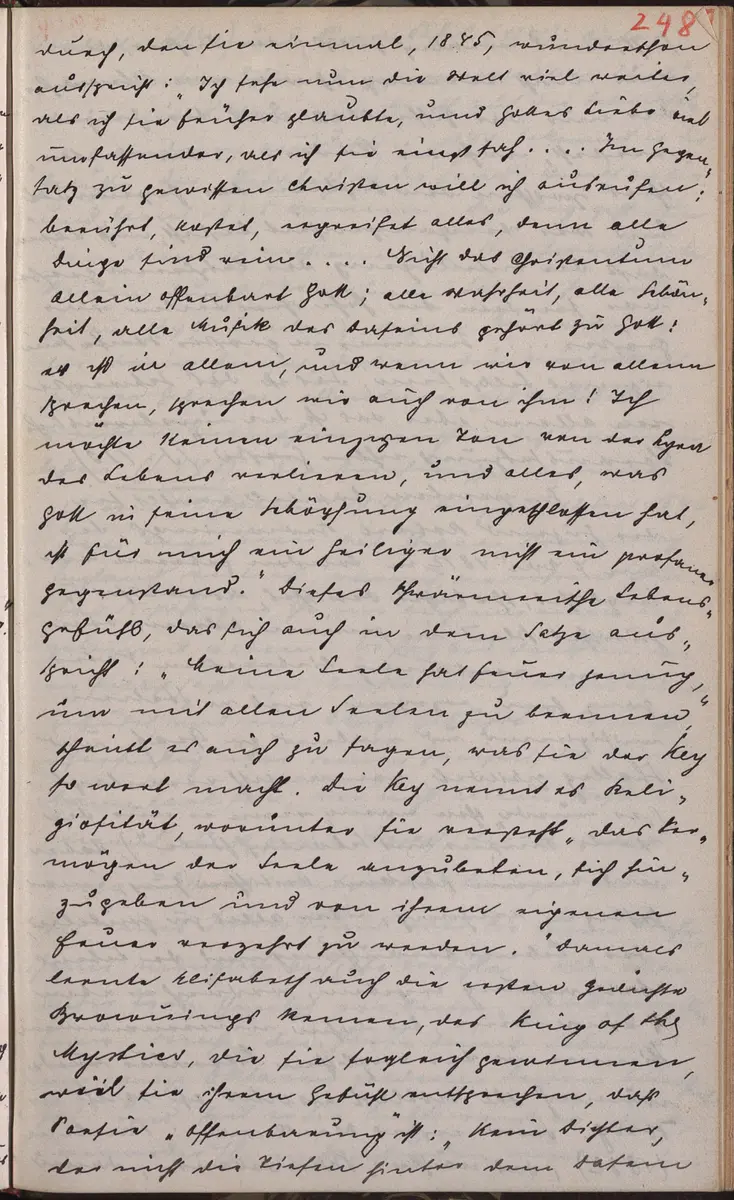 248
durch, den sie einmal, 1845, wunderschön
ausspricht: „Ich sehe nun die Welt viel weiter,
als ich sie früher glaubte, und Gottes Liebe viel
umfassender, als ich sie einst sah.... Im Gegen„
satz zu gewissen Christen will ich ausrufen:
berührt, kostet, ergreifet alles, denn alle
Dinge sind rein.... Nicht das Christentum
allein offenbart Gott; alle Wahrheit, alle Schön„
heit, alle Musik des Daseins gehört zu Gott:
er ist in allem, und wenn wir von allem
sprechen, sprechen wir auch von ihm! Ich
möchte keinen einzigen Ton von der Lyra
des Lebens verlieren, und alles, was
Gott in seine Schöpfung eingeschlossen hat,
ist für mich ein heiliger nicht ein profaner
Gegenstand.“ Dieses schwärmerische Lebens„
gefühl, das sich auch in dem Satze aus„
spricht: „Meine Seele hat Feuer genug,
um mit allen Seelen zu brennen“,
scheint es auch zu sagen, was sie der Key
so wert macht. Die Key nennt es Reli„
giosität, worunter sie versteht „das Ver„
mögen der Seele anzubeten, sich hin„
zugeben und von ihrem eigenen
Feuer verzehrt zu werden.“ Damals
lernte Elisabeth auch die ersten Gedichte
Brownings kennen, des King of the
Mystics, die sie sogleich gewinnen,
weil sie ihrem Gefühl entsprechen, daß
Poesie „Offenbarung“ ist: „Kein Dichter,
der nicht die Tiefen hinter dem Datem